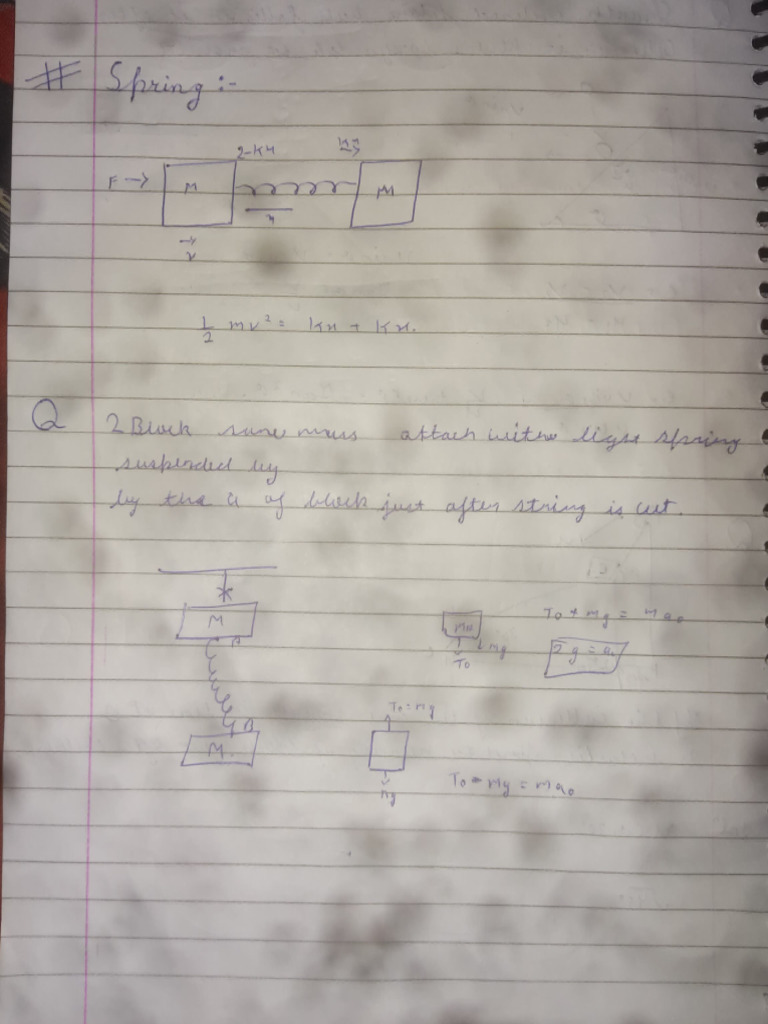 # Spring :-
2-KH
F →
M
M
x
v
1/2 mv² = Kx + Kx.
Q 2 Block same mass attach with light spring
suspended by
by the a of block just after string is cut.
M
T₀ + Mg = Ma₀
mg
2g = a₀
T₀
T₀ = Mg
B
M
Mg
T₀ - Mg = Ma₀